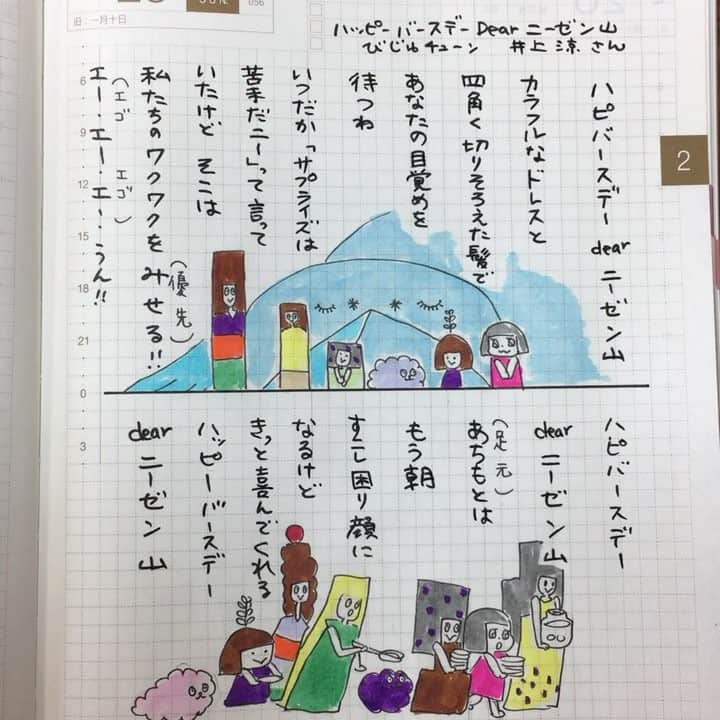 JUN.
056
旧:一月十日
ハッピーバースデー Dear ニーゼン山
びじゅチューン 井上涼さん
ハピバースデー dear ニーゼン山
カラフルなドレスと
四角く切りそろえた髪で
あなたの目覚めを
待つわ
いつだか「サプライズは
苦手だニー」って言って
いたけど そこは
私たちのワクワクを みせる!!
(優先)
エー・エー・エー・うん!!
(エゴ エゴ)
6
9
12
15
18
21
0
3
2
ハピバースデー
dear ニーゼン山
あちもとは
(足元)
もう朝
すこし困り顔に
なるけど
きっと喜んでくれる
ハッピーバースデー
dear ニーゼン山